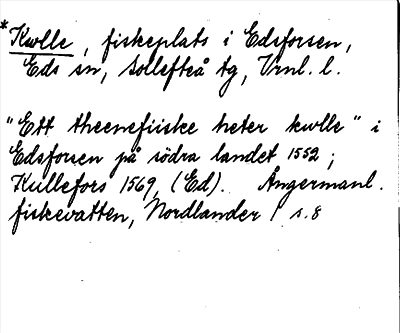 *Kwlle, fiskeplats i Edsforsen,
Eds sn, Sollefteå tg, Vrnl. l.
"Ett theenefiiske heter kwlle" i
Edsforsen på södra landet 1552;
Kullefors 1569, (Ed). Ångermanl.
fiskevatten, Nordlander 1 s. 8